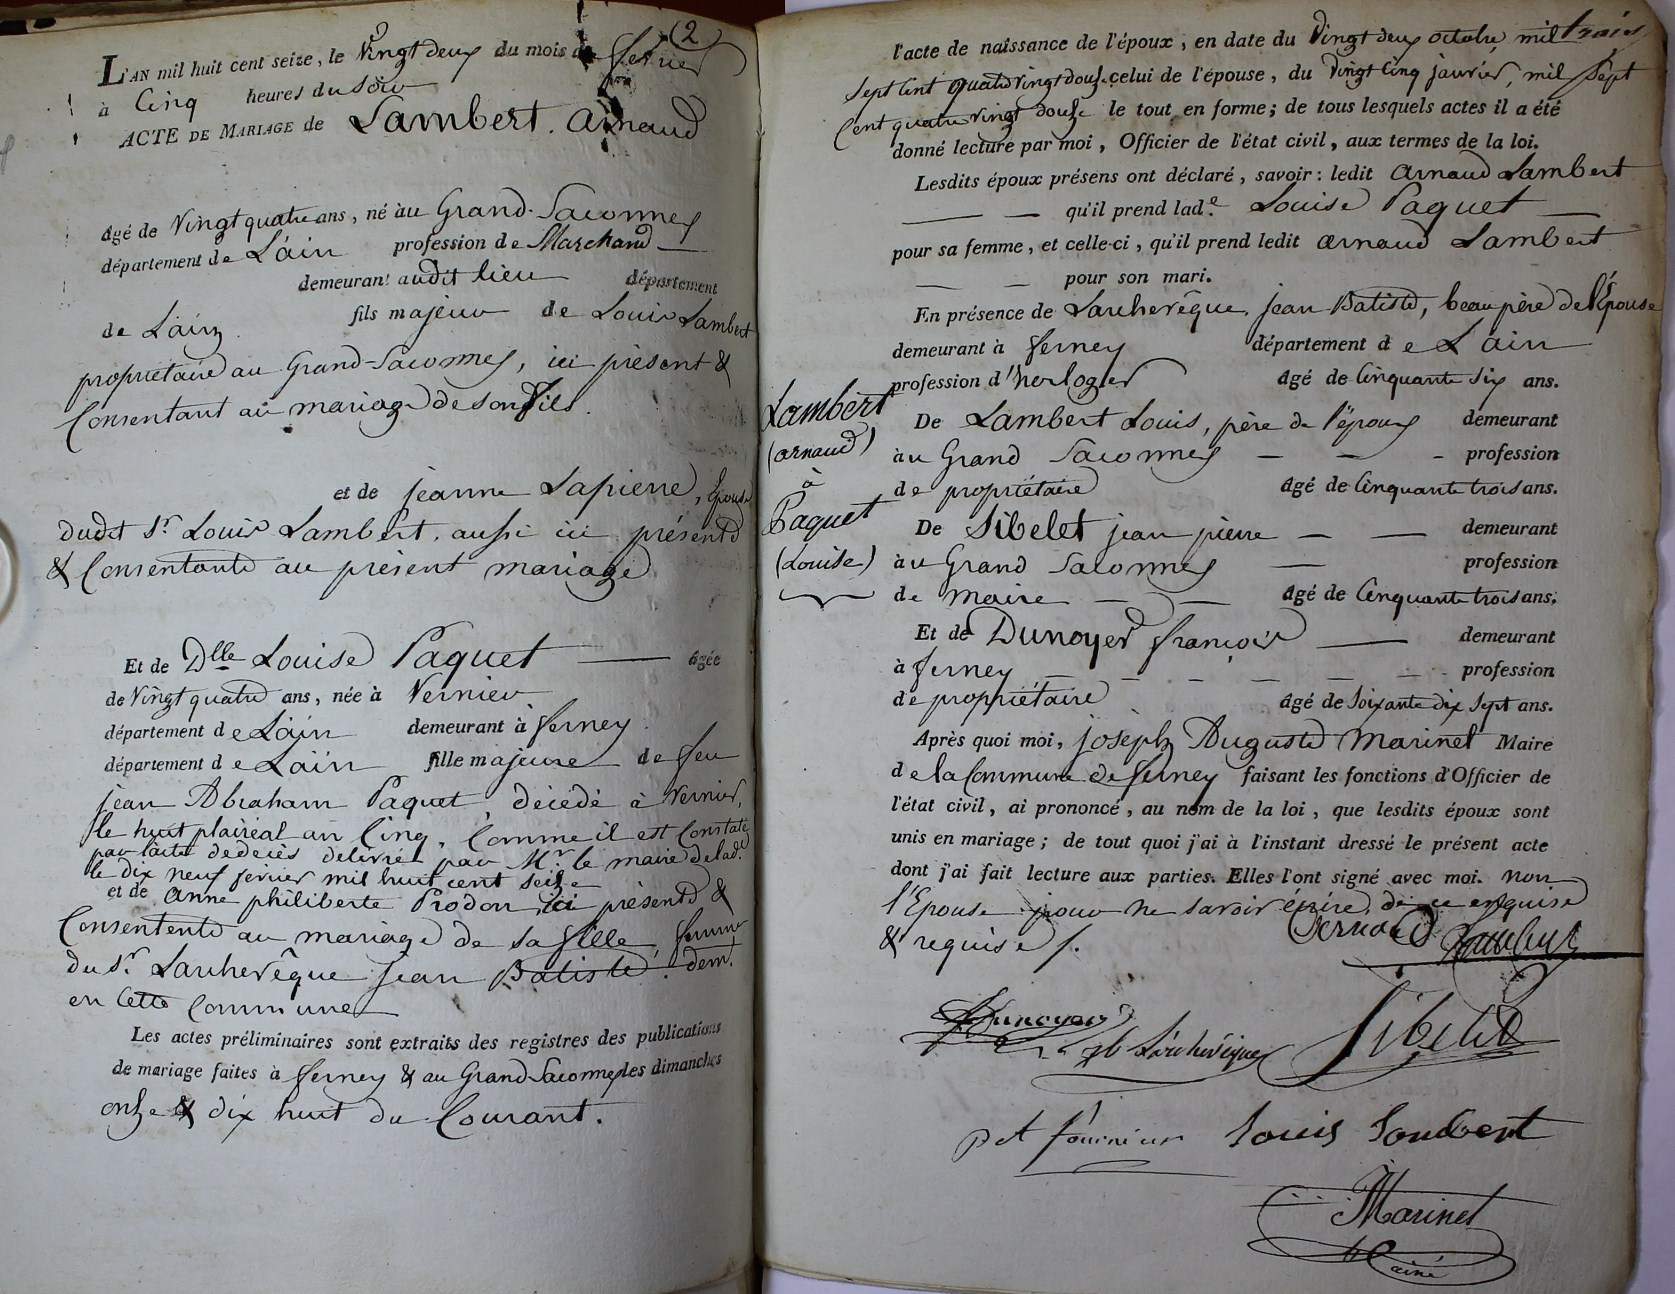 2
L'AN mil huit cent seize, le Vingt deux du mois de fevrier
à Cinq heures du Soir
ACTE DE MARIAGE de Lambert. Arnaud
Agé de Vingt quatre ans, né àu Grand-Saconnex
département de L'ain profession de Marchand
demeurant audit lieu département
de L'ain fils majeur de Louis Lambert
propriétaire au Grand-Saconnex, ici présent &
Consentant au mariage de son fils.
et de jeanne Lapierre, Epouse
dudt Sr. Louis Lambert, aussi ici présente
& Consentante au présent mariage
Et de Dlle Louise Paquet Agée
de Vingt quatre ans, née à Vernier
département de L'ain demeurant à ferney
département de L'ain fille majeure de feu
jean Abraham Paquet décédé à Vernier,
le huit plairéal an Cinq, Comme il est Constaté
par l'acte de decès délivré par Mr. le maire de lad.
le dix neuf fevrier mil huit cent seize
et de Anne philiberte Prodon, ici présente &
Consentente au mariage de sa fille, femme
du Sr. Larchevêque Jean Batiste. dem.
en Cette Commune
Les actes préliminaires sont extraits des registres des publications
de mariage faites à ferney & au Grand-Saconnex les dimanches
onze & dix huit du Courant.
l'acte de naissance de l'époux, en date du Vingt deux octobre mil
Sept Cent quatre vingt douze. celui de l'épouse, du Vingt Cinq janvier, mil Sept
Cent quatre vingt douze le tout en forme; de tous lesquels actes il a été
donné lecture par moi, Officier de l'état civil, aux termes de la loi.
Lesdits époux présens ont déclaré, savoir: ledit Arnaud Lambert
qu'il prend lade. Louise Paquet
pour sa femme, et celle-ci, qu'il prend ledit Arnaud Lambert
pour son mari.
En présence de Larchevêque, jean Batiste, beau père de l'Epouse
demeurant à ferney département de L'ain
profession d'horloger Agé de Cinquante Six ans.
De Lambert Louis, père de l'époux demeurant
àu Grand Saconnex profession
de propriétaire Agé de Cinquante trois ans.
De Sibelet jean pierre demeurant
àu Grand Saconnex profession
de maire Agé de Cinquante trois ans.
Et de Dunoyer françois demeurant
à ferney profession
de propriétaire Agé de Soixante dix Sept ans.
Lambert
(arnaud)
à
Paquet
(Louise)
Après quoi moi, joseph Auguste Marinet Maire
de la Commune de ferney faisant les fonctions d'Officier de
l'état civil, ai prononcé, au nom de la loi, que lesdits époux sont
unis en mariage; de tout quoi j'ai à l'instant dressé le présent acte
dont j'ai fait lecture aux parties. Elles l'ont signé avec moi. non
l'Epouse pour ne savoir écrire, de ce enquise
& requise /.
Dunoyer
Larchevêque
Sibelet
Louis Lambert
Marinet
ainé